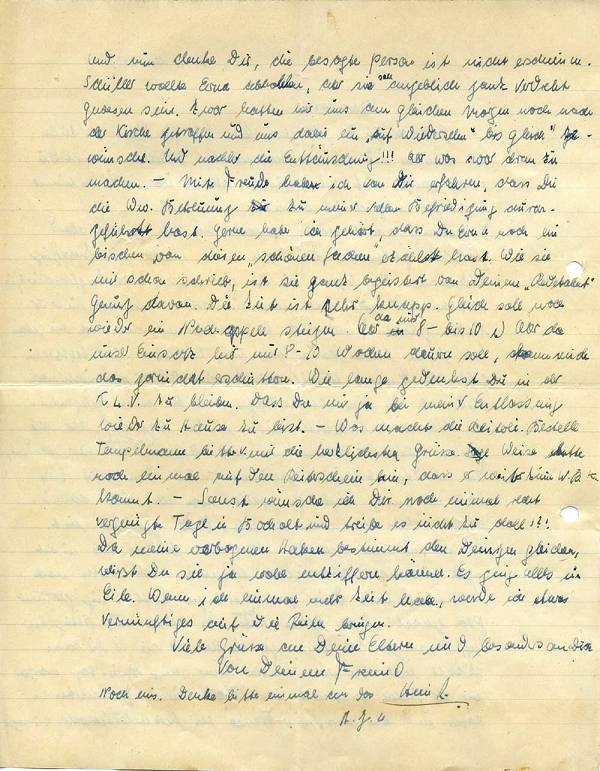 und nun denke Dir, die besagte Person ist nicht erschienen.
Schüller wollte Erna abholen, aber sie soll angeblich ganz verdreht
gewesen sein. Zwar hatten wir uns am gleichen Morgen noch nach
der Kirche getroffen und uns dabei ein „auf Wiedersehen" „bis gleich" ge-
wünscht. Und nachher die Enttäuschung!!! Aber was war daran zu
machen. – Mit Freude habe ich von Dir erfahren, dass Du
die Wo. Betreuung zu meiner vollen Befriedigung durch-
geführt hast. Gerne habe ich gehört, dass Du Erna noch ein
bischen von diesen „schönen Sachen" erzählst hast. Wie sie
mir schon schrieb, ist sie ganz begeistert von Deinem „Redetalent"
Genug davon. Die Zeit ist sehr knapp. Gleich soll noch
wieder ein Nach appell steigen. 8 – bis 10 Aber da
unser Einsatz hier nur 8-10 Wochen dauern soll, kann mich
das garnicht erschüttern. Wie lange gedenkst Du in der
K.L.V. zu bleiben. Dass Du mir ja bei meiner Entlassung
wieder zu Hause zu bist. – Was macht die Bestelle
Tempelmann bitte v. mir die herzlichsten Grüsse. Weise bitte
noch einmal auf den hin, dass er weiter zum W.B.
kommt. – Sonst wünsche ich Dir noch einmal recht
vergnügte Tage in Bocholt und treibe es nicht zu doll!?!
Da meine verbogenen Haken bestimmt den Deinigen gleichen,
wirst Du sie ja wohl entziffern können. Es ging alles in
Eile. Wenn ich einmal mehr Zeit habe, werde ich etwas
Vernünftiges auf die Reihe bringen.
Viele Grüsse an Deine Eltern und besonders an Dich
Von Deinem Freund
Noch eins. Denke bitte einmal an das